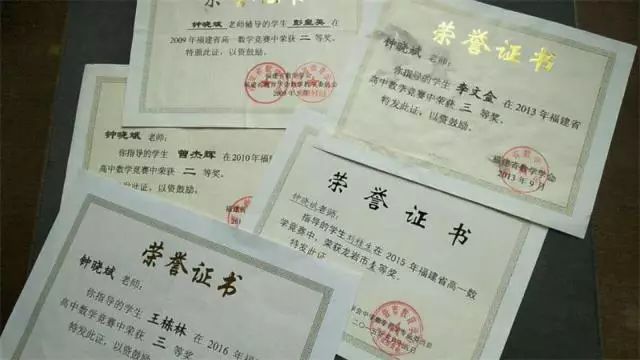 钟晓斌 老师辅导的学生 彭皇英 在
2009年福建省高一数学竞赛中荣获 二 等奖。
特颁此证，以资鼓励。
福建省数学学会
荣誉证书
钟晓斌 老师：
你指导的学生 李文金 在2013年福建省
高中数学竞赛中荣获 三 等奖。
特发此证，以资鼓励。
福建省数学学会
2013年9月
钟晓斌 老师：
你指导的学生 曾杰辉 在2010年福建
高中数学竞赛中荣获 二 等奖。
特发此证，以资鼓励。
荣誉证书
钟晓斌老师：
指导的学生刘桂生在2015年福建省高一数
学竞赛中，荣获龙岩市 等奖。
特发此证，以资鼓励！
荣誉证书
钟晓斌 老师：
你指导的学生 王栋林 在2016年福
高中数学竞赛中荣获 三 等奖。
特发此证，以资鼓励。